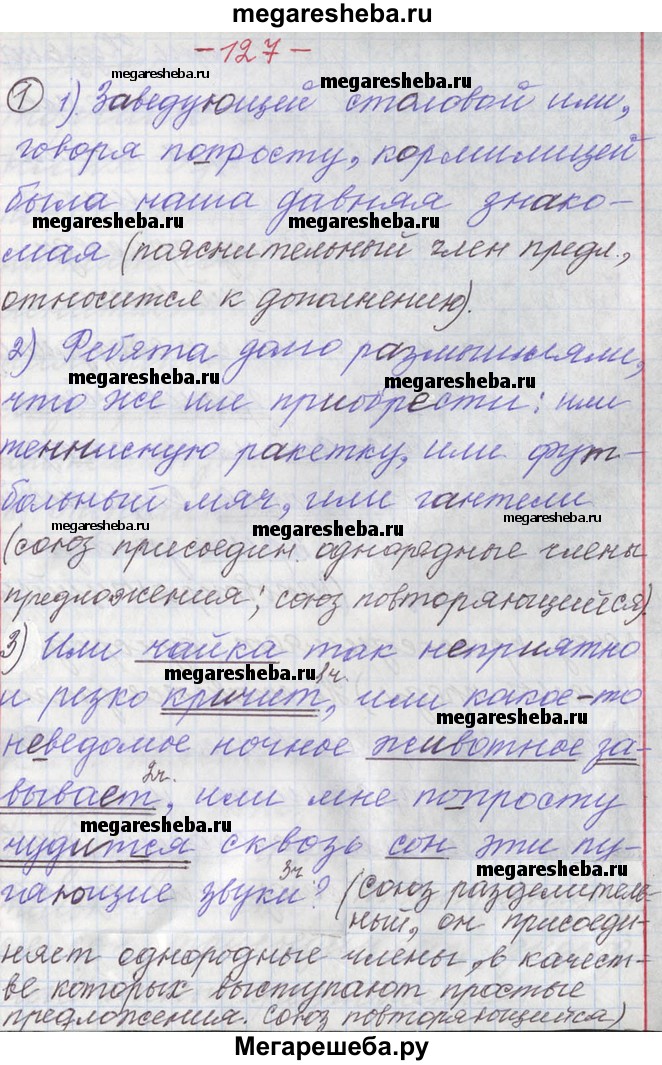 megaresheba.ru
-127-
megaresheba.ru megaresheba.ru
① 1) Заведующей столовой или,
говоря попросту, кормилицей
была наша давняя знако-
megaresheba.ru megaresheba.ru
мая (пояснительный член предл.,
относится к дополнению).
2) Ребята долго размышляли,
megaresheba.ru megaresheba.ru
что же им приобрести: или
теннисную ракетку, или фут-
больный мяч, или гантели
megaresheba.ru megaresheba.ru megaresheba.ru
(союз присоедин. однородные члены
предложения; союз повторяющийся)
3) Или чайка так неприятно
megaresheba.ru 1ч.
и резко кричит, или какое-то
megaresheba.ru
неведомое ночное животное за-
2ч.
вывает, или мне попросту
megaresheba.ru
чудится сквозь сон эти пу-
3ч.
гающие звуки? (союз разделитель
megaresheba.ru
ный, он присоеди-
няет однородные члены, в качест-
ве которых выступают простые
предложения. Союз повторяющийся)
Мегарешеба.ру